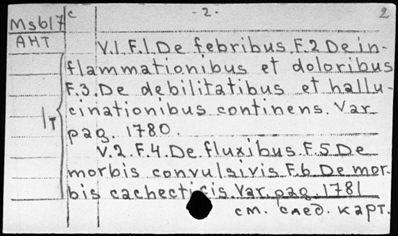 Msb17 c -2- 2
АНТ V.1.F.1.De febribus.F.2 De in-
flammationibus et doloribus
F.3.De debilitatibus et hallu-
1т cinationibus continens. Var.
pag. 1780.
V.2.F.4.De fluxibus.F.5.De
morbis convulsivis F.6.De mor-
bis cachecticis. Var. pag. 1781
см. след. карт.